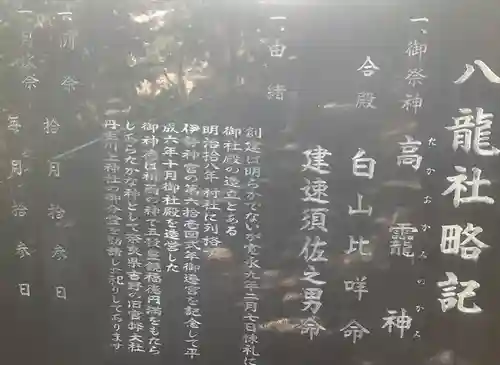 八龍社略記
一、御祭神 高龗神
たかおかみのかみ
合殿 白山比咩命
建速須佐之男命
一、由緒
創建は明らかでないが寛永九年二月七日棟札に
御社殿の造立とある
明治拾八年村社に列格す
伊勢神宮の第六拾壱回式年御遷宮を記念して平
成六年十月御社殿を造営した
御神徳は祈雨の神で五穀豊饒福徳円満をもたら
してらたかな神として奈良県吉野の旧官幣大社
丹生川上神社の御分霊を勧請しお祀りしてあります
一、例祭 拾月拾参日
一、月次祭 毎月拾参日